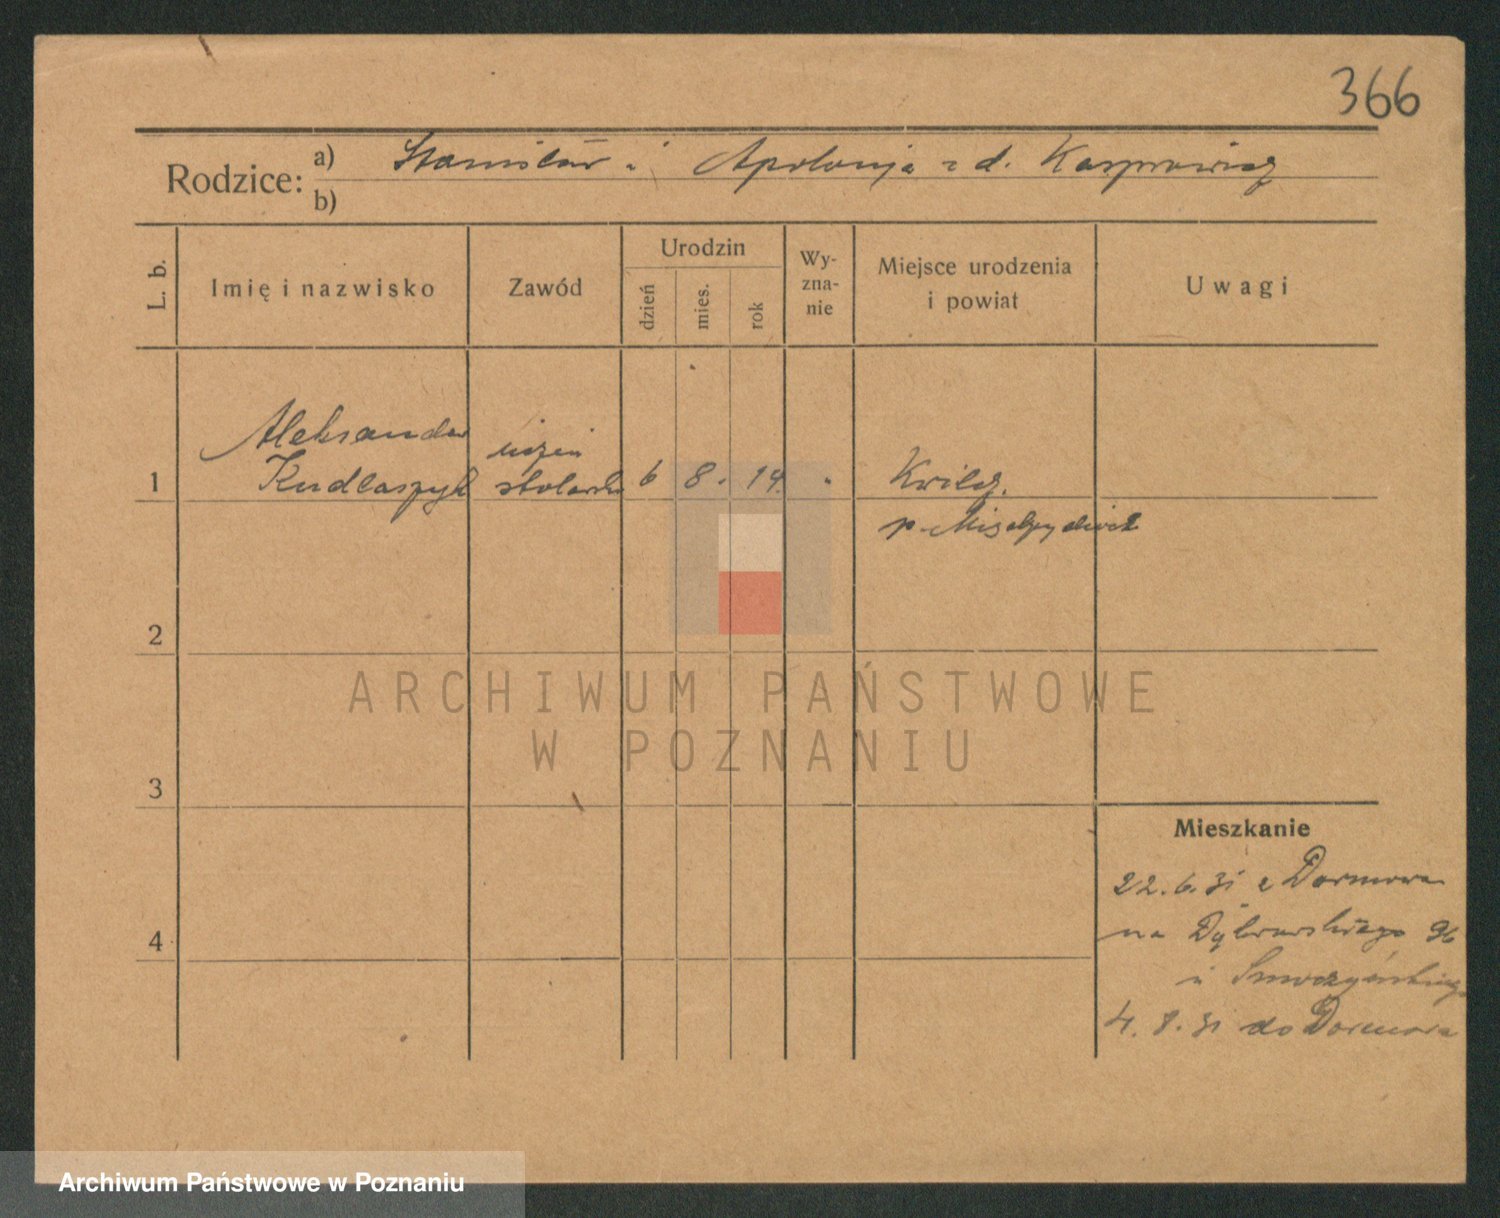 366
Rodzice: a) Stanisław i Apolonja z d. Kasprowicz
b)
L. b.
Imię i nazwisko
Zawód
Urodzin
dzień
mies.
rok
Wy-
zna-
nie
Miejsce urodzenia
i powiat
Uwagi
Aleksander
uczeń
1 Kudlaszyk stolarski 6 8. 14. " Kwilcz.
p. Międzychód
2
ARCHIWUM PAŃSTWOWE
W POZNANIU
3
Mieszkanie
22.6.31 z Dormowa
na Dąbrowskiego 96
4
u Smoczyńskiego
4. 8. 31 do Dormowa
Archiwum Państwowe w Poznaniu